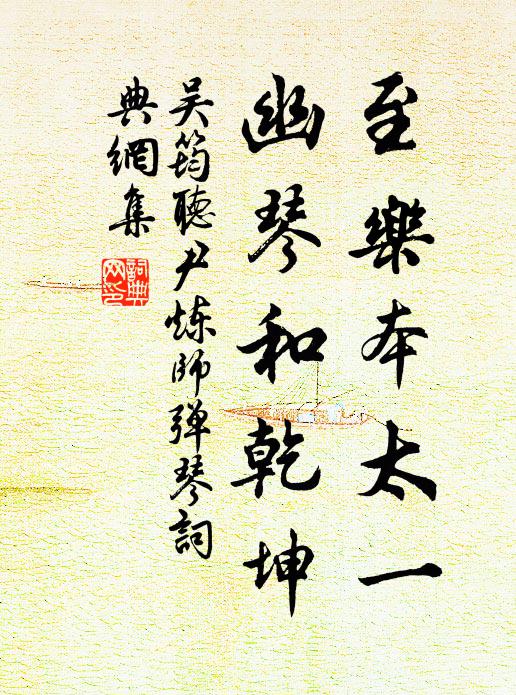 至樂本太一
幽琴和乾坤
吴筠聽尹炼师弹琴詞
典網集
詞典网印